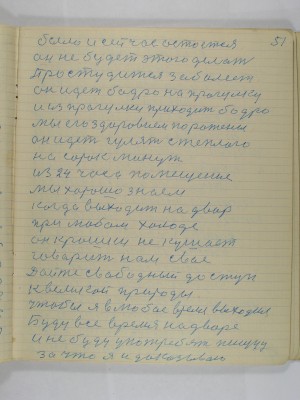 51
было и сейчас остается
он не будет этого делать
Простудится заболеет
он идет бодро на прогулку
и из прогулки приходит бодро
мы его здоровьем поражены
он идет гулят с теплого
на сорок минут
из 24 часа помещение
мы хорошо знаем
когда выходит на двар
при любом холоде
он крошки не кушает
говорит нам свое
Дайте свабодный доступ
к великой природы.
чтобы я в любое время выходил
Буду все время на дваре
и не буду употреблять пищу
за что я и доказываю